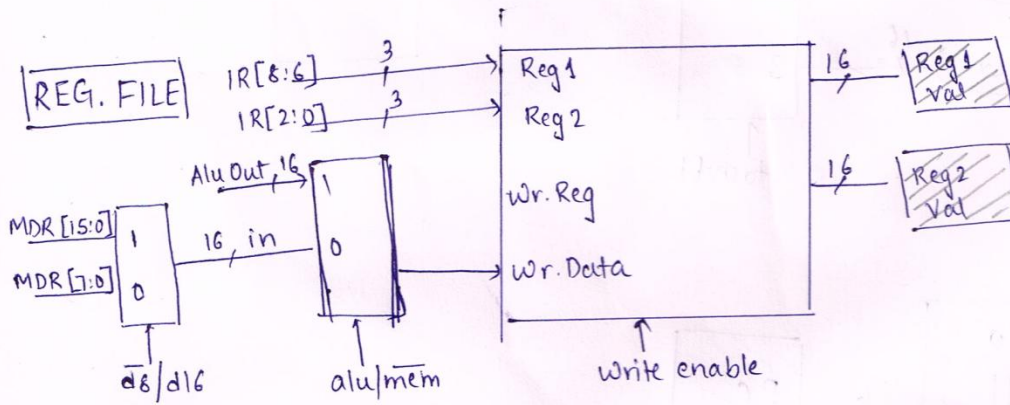 REG. FILE
IR[8:6]
3
IR[2:0]
3
Alu Out, 16
1
0
MDR[15:0]
MDR[7:0]
1
0
16 in
d̅8̅/d16
alu/m̅e̅m̅
Reg1
Reg2
Wr.Reg
Wr.Data
write enable
16
Reg1
Val
16
Reg2
Val